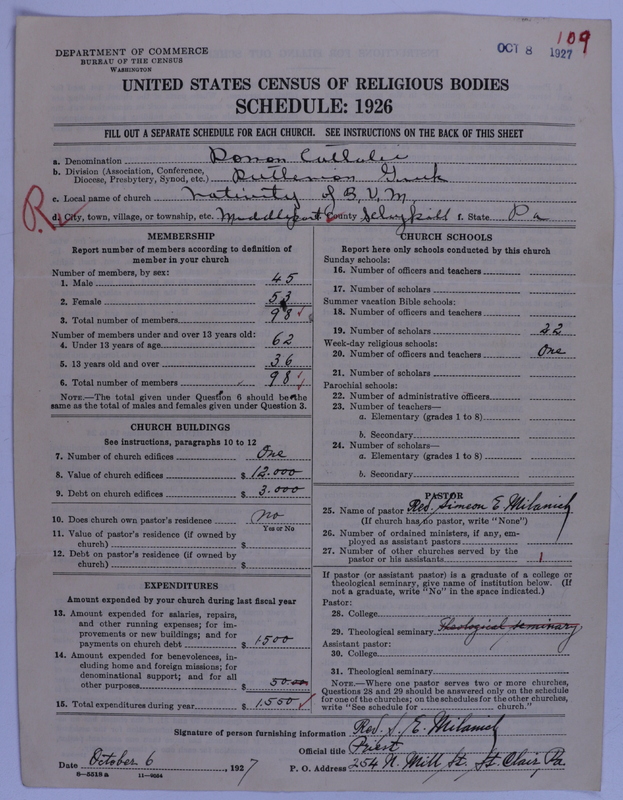 109
OCT 8 1927
DEPARTMENT OF COMMERCE
BUREAU OF THE CENSUS
WASHINGTON
UNITED STATES CENSUS OF RELIGIOUS BODIES
SCHEDULE: 1926
FILL OUT A SEPARATE SCHEDULE FOR EACH CHURCH. SEE INSTRUCTIONS ON THE BACK OF THIS SHEET
a. Denomination Roman Catholic
b. Division (Association, Conference, Diocese, Presbytery, Synod, etc.) Ruthenian Greek
c. Local name of church Nativity of B.V.M
d. City, town, village, or township, etc. Middleport County Schuylkill f. State Pa
MEMBERSHIP
Report number of members according to definition of
member in your church
Number of members, by sex:
1. Male 45
2. Female 53
3. Total number of members 98
Number of members under and over 13 years old:
4. Under 13 years of age 62
5. 13 years old and over 36
6. Total number of members 98
NOTE.—The total given under Question 6 should be the
same as the total of males and females given under Question 3.
CHURCH BUILDINGS
See instructions, paragraphs 10 to 12
7. Number of church edifices One
8. Value of church edifices $ 12.000
9. Debt on church edifices $ 3.000
10. Does church own pastor's residence no
Yes or No
11. Value of pastor's residence (if owned by
church) $
12. Debt on pastor's residence (if owned by
church) $
EXPENDITURES
Amount expended by your church during last fiscal year
13. Amount expended for salaries, repairs,
and other running expenses; for im-
provements or new buildings; and for
payments on church debt $ 1500
14. Amount expended for benevolences, in-
cluding home and foreign missions; for
denominational support; and for all
other purposes $ 50.00
15. Total expenditures during year $ 1.550
CHURCH SCHOOLS
Report here only schools conducted by this church
Sunday schools:
16. Number of officers and teachers
17. Number of scholars
Summer vacation Bible schools:
18. Number of officers and teachers
19. Number of scholars 22
Week-day religious schools:
20. Number of officers and teachers One
21. Number of scholars
Parochial schools:
22. Number of administrative officers
23. Number of teachers—
a. Elementary (grades 1 to 8)
b. Secondary
24. Number of scholars—
a. Elementary (grades 1 to 8)
b. Secondary
PASTOR
25. Name of pastor Rev. Simeon E Milanich
(If church has no pastor, write "None")
26. Number of ordained ministers, if any, em-
ployed as assistant pastors
27. Number of other churches served by the
pastor or his assistants 1
If pastor (or assistant pastor) is a graduate of a college or
theological seminary, give name of institution below. (If
not a graduate, write "No" in the space indicated.)
Pastor:
28. College
29. Theological seminary Theological seminary
Assistant pastor:
30. College
31. Theological seminary
NOTE.—Where one pastor serves two or more churches,
Questions 28 and 29 should be answered only on the schedule
for one of the churches; on the schedules for the other churches,
write "See schedule for church."
Signature of person furnishing information Rev. S. E. Milanich
Official title Priest
Date October 6, 1927 P. O. Address 254 N. Mill St. St. Clair, Pa.
8—5518 a 11—9264